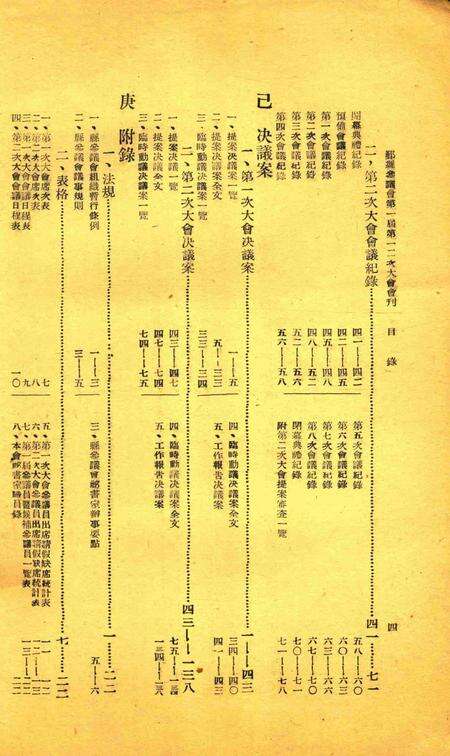 參議會第一屆第一二次大會會刊 目錄 四
二、第二次大會會議紀錄 四一——七一
開幕典禮紀錄 四一——四二
預備會議紀錄 四二——四五
第一次會議紀錄 四五——四八
第二次會議紀錄 四八——五二
第三次會議紀錄 五二——五六
第四次會議紀錄 五六——五八
第五次會議紀錄 五八——六〇
第六次會議紀錄 六〇——六三
第七次會議紀錄 六三——六六
第八次會議紀錄 六七——七〇
閉幕典禮紀錄 七〇——七一
附第二次大會提案審查一覽 七一——七八
己 決議案
一、第一次大會決議案 一——四三
一、提案決議案一覽 一——五
二、提案決議案全文 五——三三
三、臨時動議決議案一覽 三三——三四
四、臨時動議決議案全文 三四——四〇
五、工作報告決議案 四一——四三
二、第二次大會決議案 四三——一三八
一、提案決議案一覽 四三——四七
二、提案決議案全文 四七——七四
三、臨時動議決議案一覽 七四——七五
四、臨時動議決議案全文 七五——一三四
五、工作報告決議案 一三四——一三八
庚 附錄
一、法規 一——
一、縣參議會組織暫行條例 一——三
二、縣參議會議事規則 三——五
三、縣參議會秘書室辦事要點 五——六
二、表格 七——二二
一、第一次大會席次表 七
二、第二次大會席次表 八
三、第一次大會會議日程表 九
四、第二次大會會議日程表 一〇
五、第一次大會參議員出席請假缺席統計表
六、第二次大會參議員出席請假缺席統計表
七、第一屆參議員暨候補參議員一覽表
八、本會秘書室職員錄